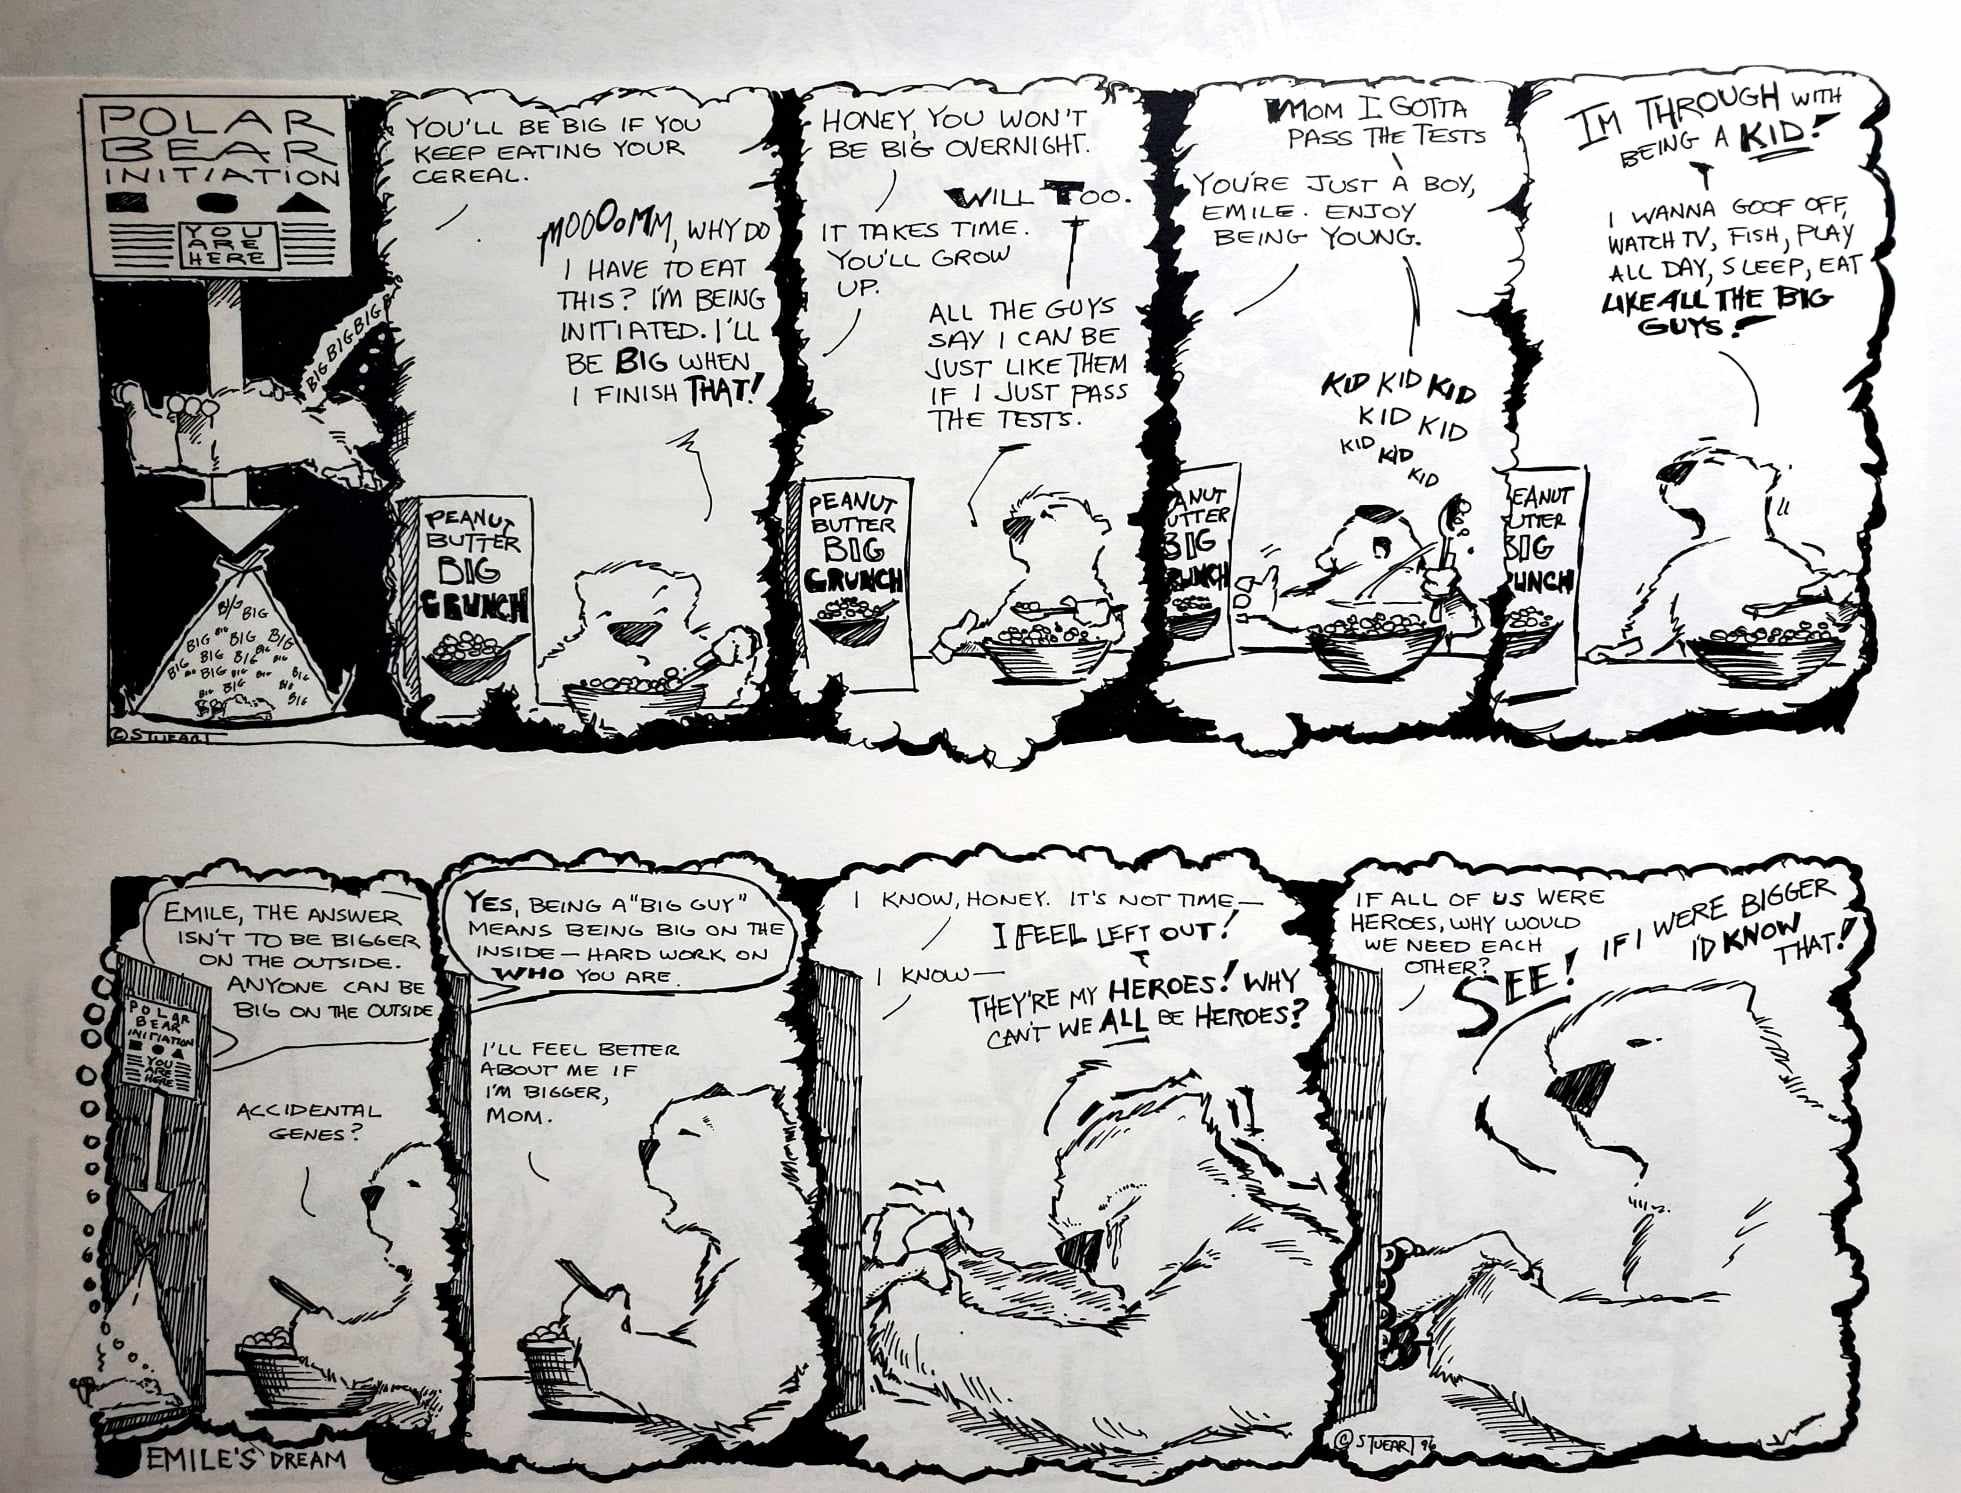 POLAR
BEAR
INITIATION
YOU
ARE
HERE
BIG BIG BIG
BIG BIG
BIG BIG BIG BIG
BIG BIG BIG BIG BIG
BIG BIG BIG BIG BIG BIG
BIG BIG BIG BIG
©STUEART
YOU'LL BE BIG IF YOU
KEEP EATING YOUR
CEREAL.
MOOOOMM, WHY DO
I HAVE TO EAT
THIS? I'M BEING
INITIATED. I'LL
BE BIG WHEN
I FINISH THAT!
PEANUT
BUTTER
BIG
CRUNCH
HONEY, YOU WON'T
BE BIG OVERNIGHT.
WILL TOO.
IT TAKES TIME.
YOU'LL GROW
UP.
ALL THE GUYS
SAY I CAN BE
JUST LIKE THEM
IF I JUST PASS
THE TESTS.
PEANUT
BUTTER
BIG
CRUNCH
MOM I GOTTA
PASS THE TESTS
YOU'RE JUST A BOY,
EMILE. ENJOY
BEING YOUNG.
KID KID KID
KID KID
KID KID
KID
ANUT
UTTER
BIG
RUNCH
IM THROUGH WITH
BEING A KID!
I WANNA GOOF OFF,
WATCH TV, FISH, PLAY
ALL DAY, SLEEP, EAT
LIKE ALL THE BIG
GUYS!
EANUT
UTTER
BIG
UNCH
EMILE, THE ANSWER
ISN'T TO BE BIGGER
ON THE OUTSIDE.
ANYONE CAN BE
BIG ON THE OUTSIDE
POLAR
BEAR
INITIATION
YOU
ARE
HERE
ACCIDENTAL
GENES?
EMILE'S DREAM
YES, BEING A "BIG GUY"
MEANS BEING BIG ON THE
INSIDE — HARD WORK ON
WHO YOU ARE.
I'LL FEEL BETTER
ABOUT ME IF
I'M BIGGER,
MOM.
I KNOW, HONEY. IT'S NOT TIME—
I FEEL LEFT OUT!
I KNOW—
THEY'RE MY HEROES! WHY
CAN'T WE ALL BE HEROES?
IF ALL OF US WERE
HEROES, WHY WOULD
WE NEED EACH
OTHER?
SEE! IF I WERE BIGGER
I'D KNOW
THAT!
©STUEART 96